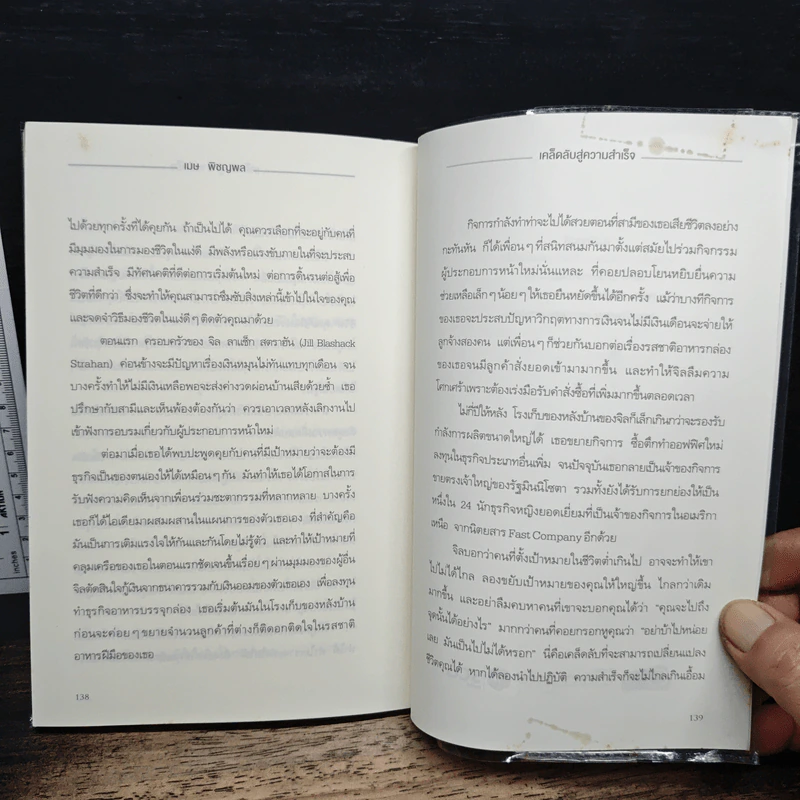 เมษ พิชญพล
ไปด้วยทุกครั้งที่ได้คุยกัน ถ้าเป็นไปได้ คุณควรเลือกที่จะอยู่กับคนที่
มีมุมมองในการมองชีวิตในแง่ดี มีพลังหรือแรงขับภายในที่จะประสบ
ความสำเร็จ มีทัศนคติที่ดีต่อการเริ่มต้นใหม่ ต่อการดิ้นรนต่อสู้เพื่อ
ชีวิตที่ดีกว่า ซึ่งจะทำให้คุณสามารถซึมซับสิ่งเหล่านี้เข้าไปในใจของคุณ
และจดจำวิธีมองชีวิตในแง่ดีๆ ติดตัวคุณมาด้วย
ตอนแรก ครอบครัวของ จิล ลาแช็ก สตราฮัน (Jill Blashack
Strahan) ค่อนข้างจะมีปัญหาเรื่องเงินหมุนไม่ทันแทบทุกเดือน จน
บางครั้งทำให้ไม่มีเงินเหลือพอจะส่งค่างวดผ่อนบ้านเสียด้วยซ้ำ เธอ
ปรึกษากับสามีและเห็นพ้องต้องกันว่า ควรเอาเวลาหลังเลิกงานไป
เข้าฟังการอบรมเกี่ยวกับผู้ประกอบการหน้าใหม่
ต่อมาเมื่อเธอได้พบปะพูดคุยกับคนที่มีเป้าหมายว่าจะต้องมี
ธุรกิจเป็นของตนเองให้ได้เหมือนๆ กัน มันทำให้เธอได้โอกาสในการ
รับฟังความคิดเห็นจากเพื่อนร่วมชะตากรรมที่หลากหลาย บางครั้ง
เธอก็ได้ไอเดียมาผสมผสานในแผนการของตัวเธอเอง ที่สำคัญคือ
มันเป็นการเติมแรงใจให้กันและกันโดยไม่รู้ตัว และทำให้เป้าหมายที่
คลุมเครือของเธอในตอนแรกชัดเจนขึ้นเรื่อยๆ ผ่านมุมมองของผู้อื่น
จิลตัดสินใจกู้เงินจากธนาคารรวมกับเงินออมของตัวเธอเอง เพื่อลงทุน
ทำธุรกิจอาหารบรรจุกล่อง เธอเริ่มต้นมันในโรงเก็บของหลังบ้าน
ก่อนจะค่อยๆ ขยายจำนวนลูกค้าที่ต่างก็ติดอกติดใจในรสชาติ
อาหารฝีมือของเธอ
138
เคล็ดลับสู่ความสำเร็จ
กิจการกำลังทำท่าจะไปได้สวยตอนที่สามีของเธอเสียชีวิตลงอย่าง
กะทันหัน ก็ได้เพื่อนๆ ที่สนิทสนมกันมาตั้งแต่สมัยไปร่วมกิจกรรม
ผู้ประกอบการหน้าใหม่นั่นแหละ ที่คอยปลอบโยนหยิบยื่นความ
ช่วยเหลือเล็กๆ น้อยๆ ให้เธอยืนหยัดขึ้นได้อีกครั้ง แม้ว่าบางทีกิจการ
ของเธอจะประสบปัญหาวิกฤตทางการเงินจนไม่มีเงินเดือนจะจ่ายให้
ลูกจ้างสองคน แต่เพื่อนๆ ก็ช่วยกันบอกต่อเรื่องรสชาติอาหารกล่อง
ของเธอจนมีลูกค้าสั่งยอดเข้ามามากขึ้น และทำให้จิลลืมความ
โศกเศร้าเพราะต้องเร่งมือรับคำสั่งซื้อที่เพิ่มมากขึ้นตลอดเวลา
ไม่กี่ปีให้หลัง โรงเก็บของหลังบ้านของจิลก็เล็กเกินกว่าจะรองรับ
กำลังการผลิตขนาดใหญ่ได้ เธอขยายกิจการ ซื้อตึกทำออฟฟิศใหม่
ลงทุนในธุรกิจประเภทอื่นเพิ่ม จนปัจจุบันเธอกลายเป็นเจ้าของกิจการ
ขายตรงเจ้าใหญ่ของรัฐมินนิโซตา รวมทั้งยังได้รับการยกย่องให้เป็น
หนึ่งใน 24 นักธุรกิจหญิงยอดเยี่ยมที่เป็นเจ้าของกิจการในอเมริกา
เหนือ จากนิตยสาร Fast Company อีกด้วย
จิลบอกว่าคนที่ตั้งเป้าหมายในชีวิตต่ำเกินไป อาจจะทำให้เขา
ไปไม่ได้ไกล ลองขยับเป้าหมายของคุณให้ใหญ่ขึ้น ไกลกว่าเดิม
มากขึ้น และอย่าลืมคบหาคนที่เขาจะบอกคุณได้ว่า “คุณจะไปถึง
จุดนั้นได้อย่างไร” มากกว่าคนที่คอยกรอกหูคุณว่า “อย่าบ้าไปหน่อย
เลย มันเป็นไปไม่ได้หรอก” นี่คือเคล็ดลับที่จะสามารถเปลี่ยนแปลง
ชีวิตคุณได้ หากได้ลองนำไปปฏิบัติ ความสำเร็จก็จะไม่ไกลเกินเอื้อม
139
inches
1